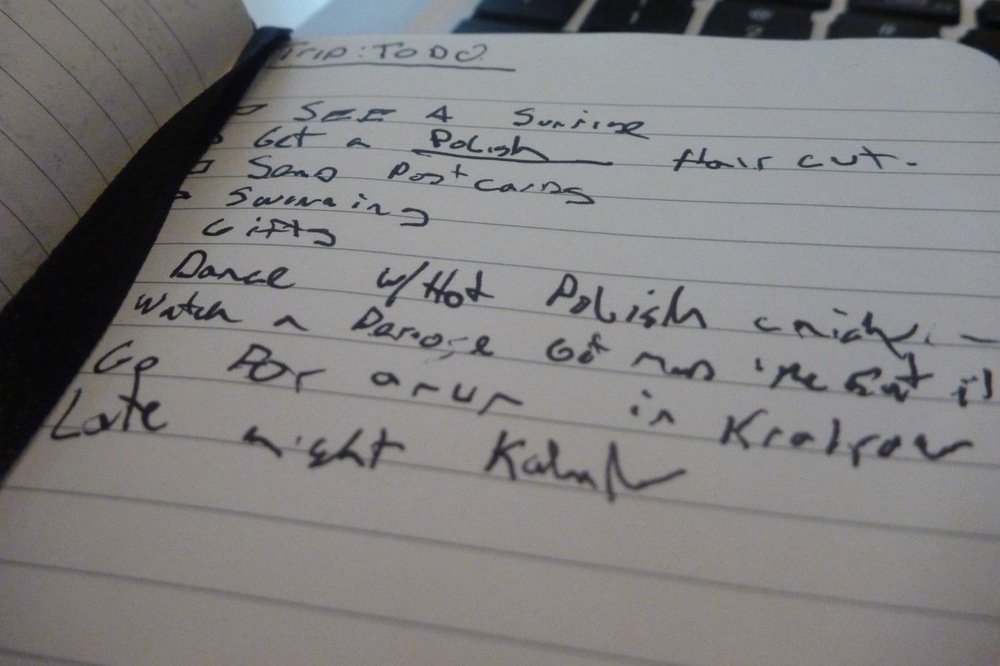 TRIP: TO DO
SEE A Sunrise
Get a Polish Hair cut.
Send Postcards
Swimming
Gifts
Dance w/Hot Polish chick. -
Watch a
Go For a run in Krakow
Late night